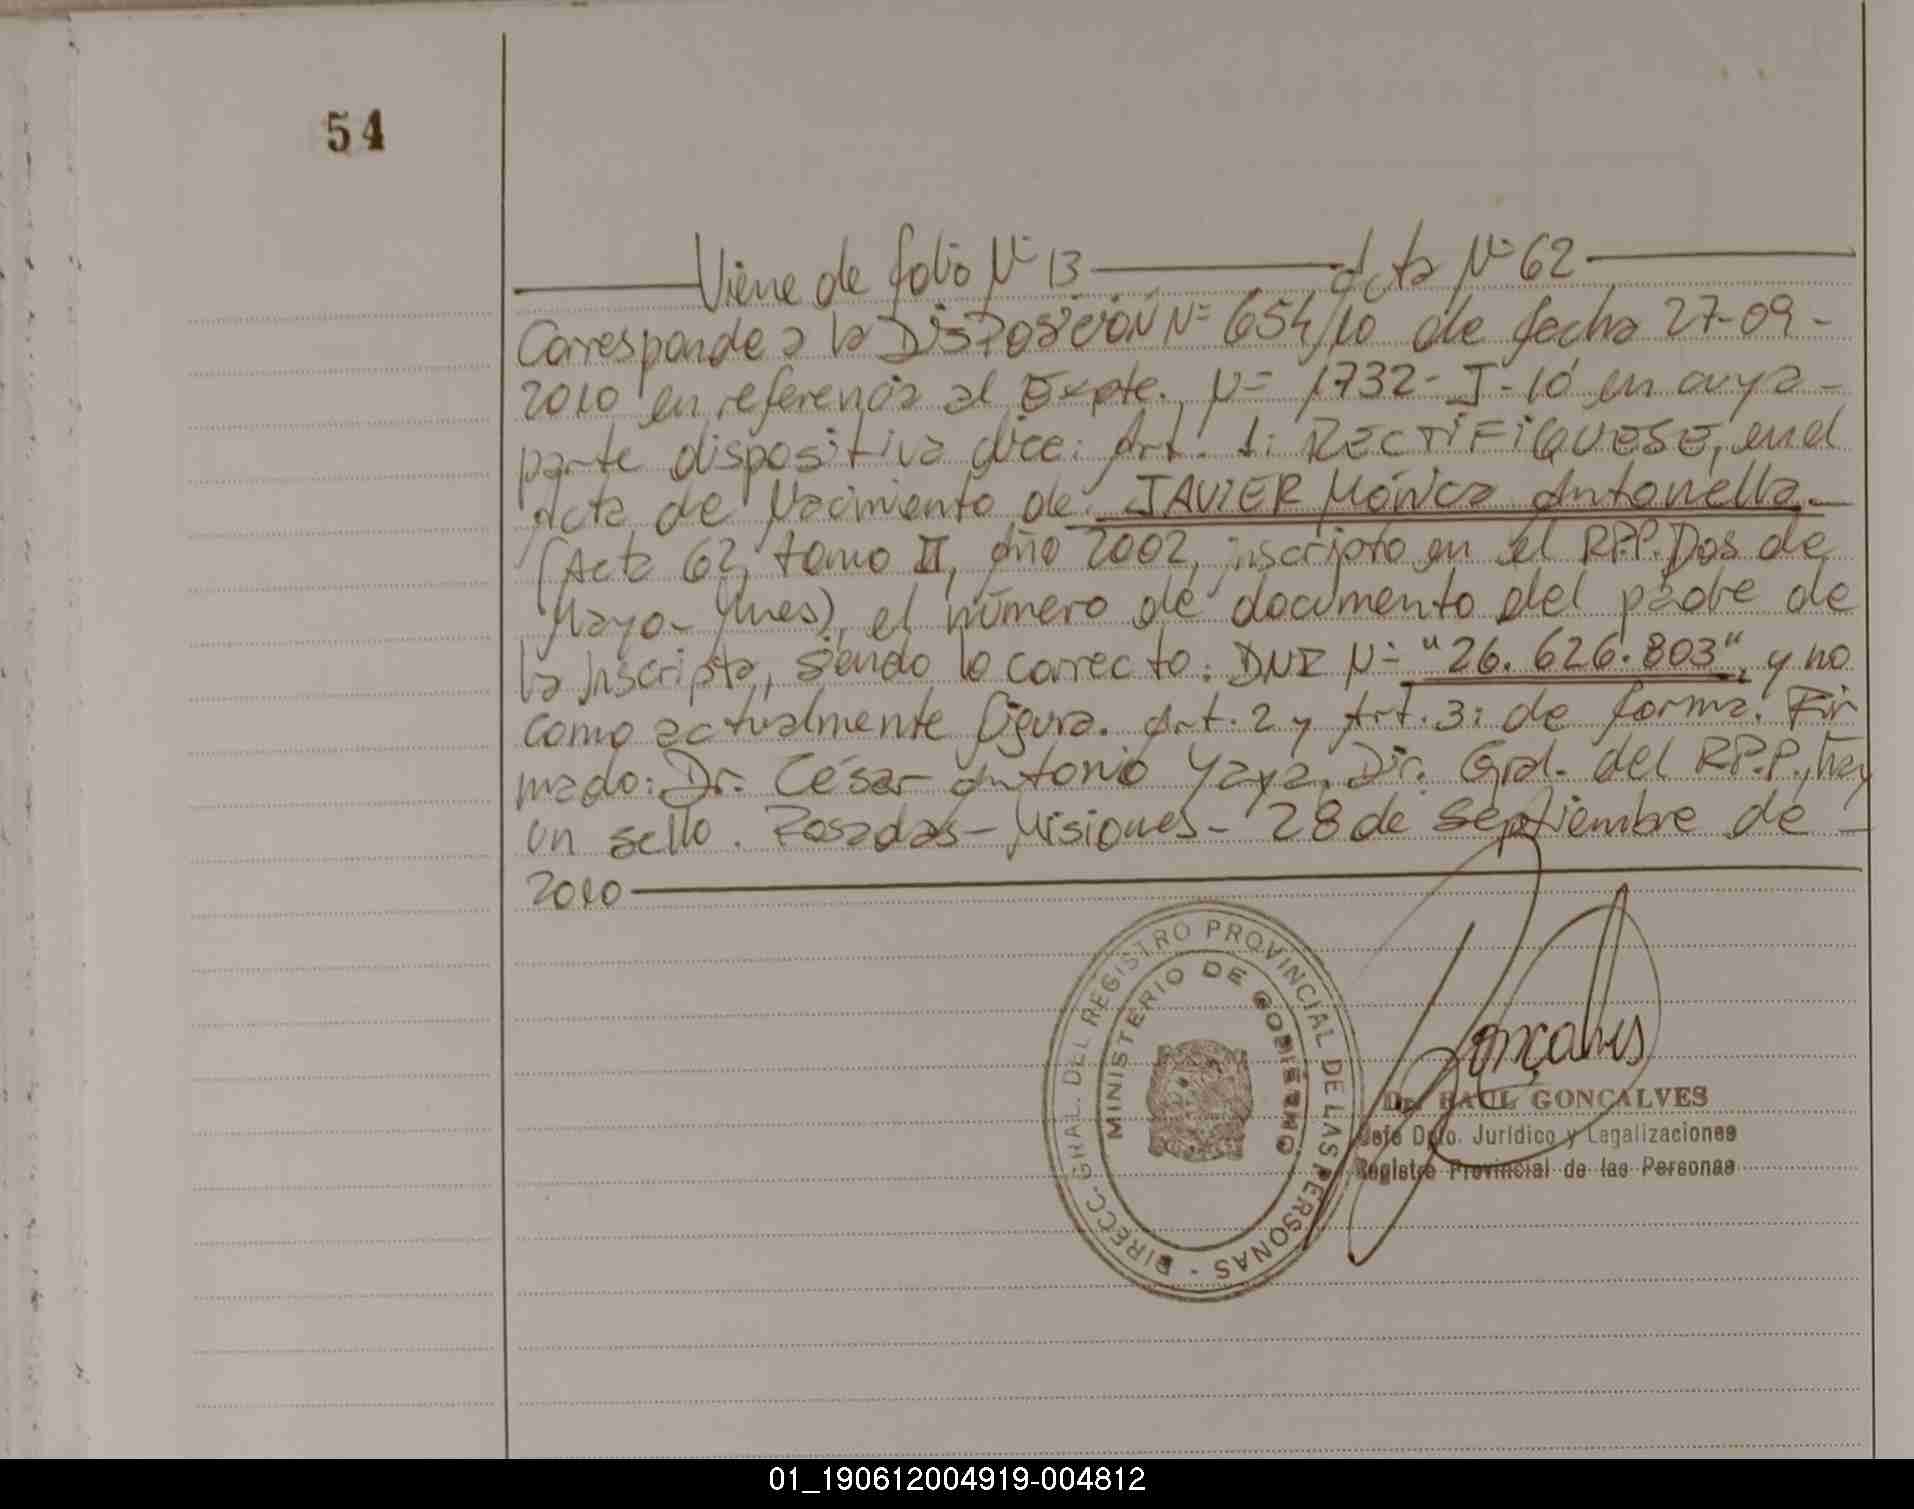 54
Viene de folio Nº 13 Acta Nº 62
Corresponde a la DISPOSICIÓN Nº 654/10 de fecha 27-09-
2010 en referencia al Expte. Nº 1732-J-10 en cuya-
parte dispositiva dice: Art. 1: RECTIFIQUESE, en el
Acta de Nacimiento de JAVIER Mónica Antonella-
(Acta 62, tomo II, Año 2002, inscripto en el RPP. Dos de
Mayo- Mnes), el número de documento del padre de
la Inscripta, siendo lo correcto: DNI Nº "26.626.803", y no
como actualmente figura. Art. 2 y Art. 3: de forma. Fir
mado: Dr. César Antonio Yaya, Dir. Gral. del RP.P., hay
un sello. Posadas- Misiones- 28 de septiembre de -
2010
DIRECC. GRAL. DEL REGISTRO PROVINCIAL DE LAS PERSONAS -
MINISTERIO DE GOBIERNO
Gonçalves
Dr. RAUL GONÇALVES
Jefe Dpto. Jurídico y Legalizaciones
Registro Provincial de las Personas
01_190612004919-004812